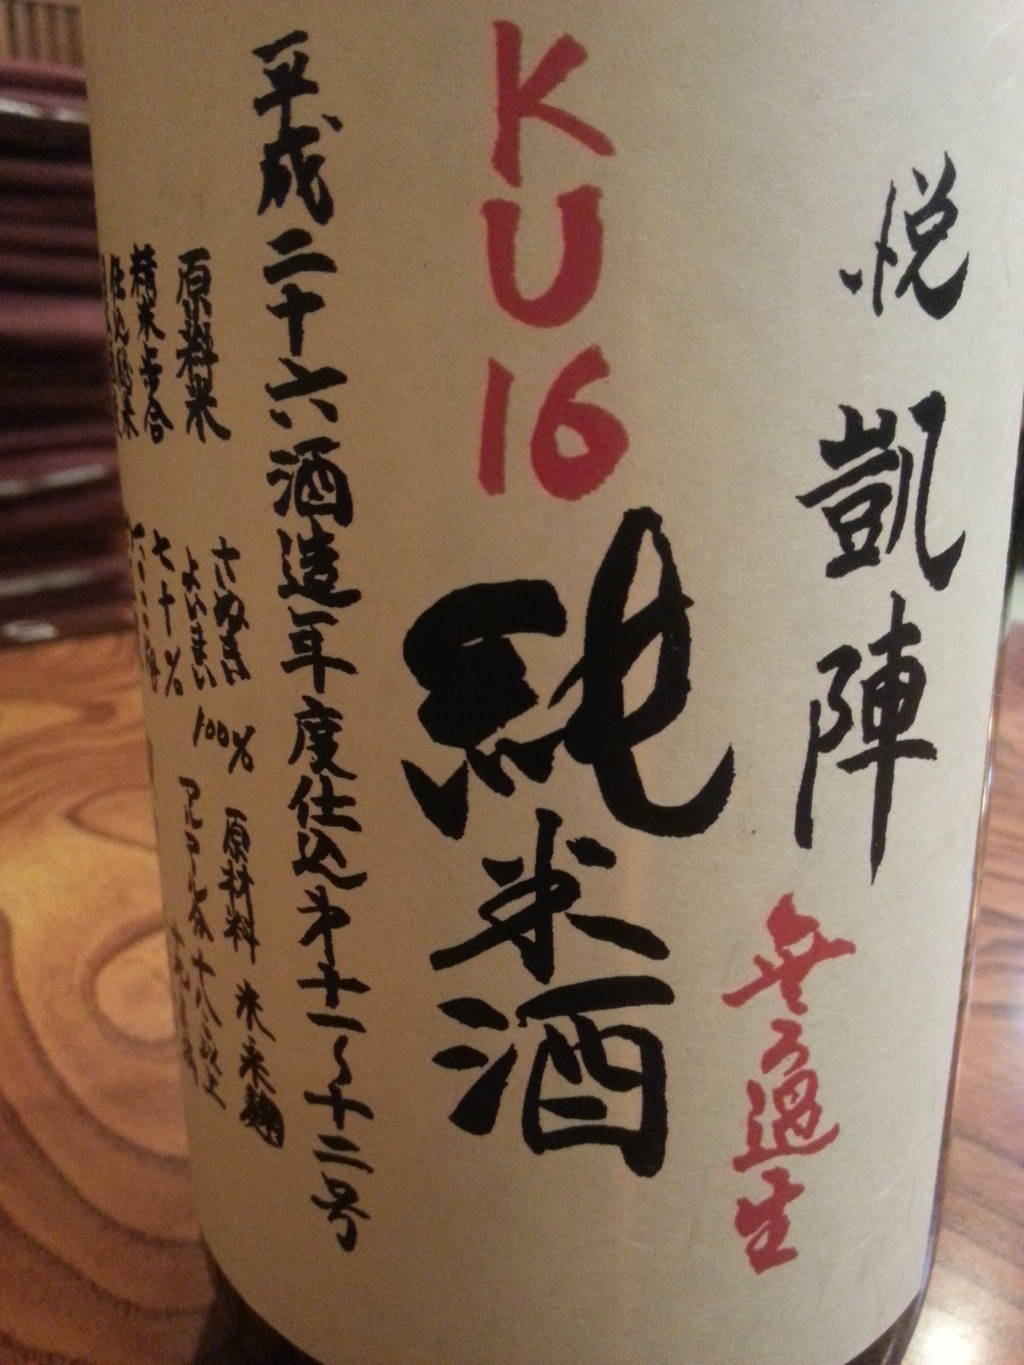 悦凱陣
無ろ過生
KU16
純米酒
平成二十六酒造年度仕込第十一〜十二号
原料米 さぬきよいまい 100% 原材料 米 米麹
精米歩合 七十% アルコール分 十八以上
仕込総米